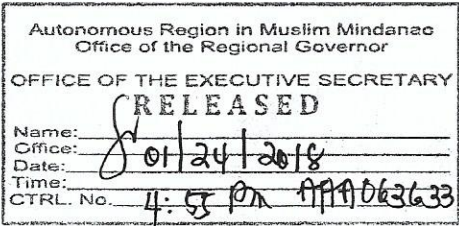 Autonomous Region in Muslim Mindanao
Office of the Regional Governor
OFFICE OF THE EXECUTIVE SECRETARY
RELEASED
Name:
Office:
Date: 01/24/2018
Time: 4:55 PM
CTRL. No. AAA063633